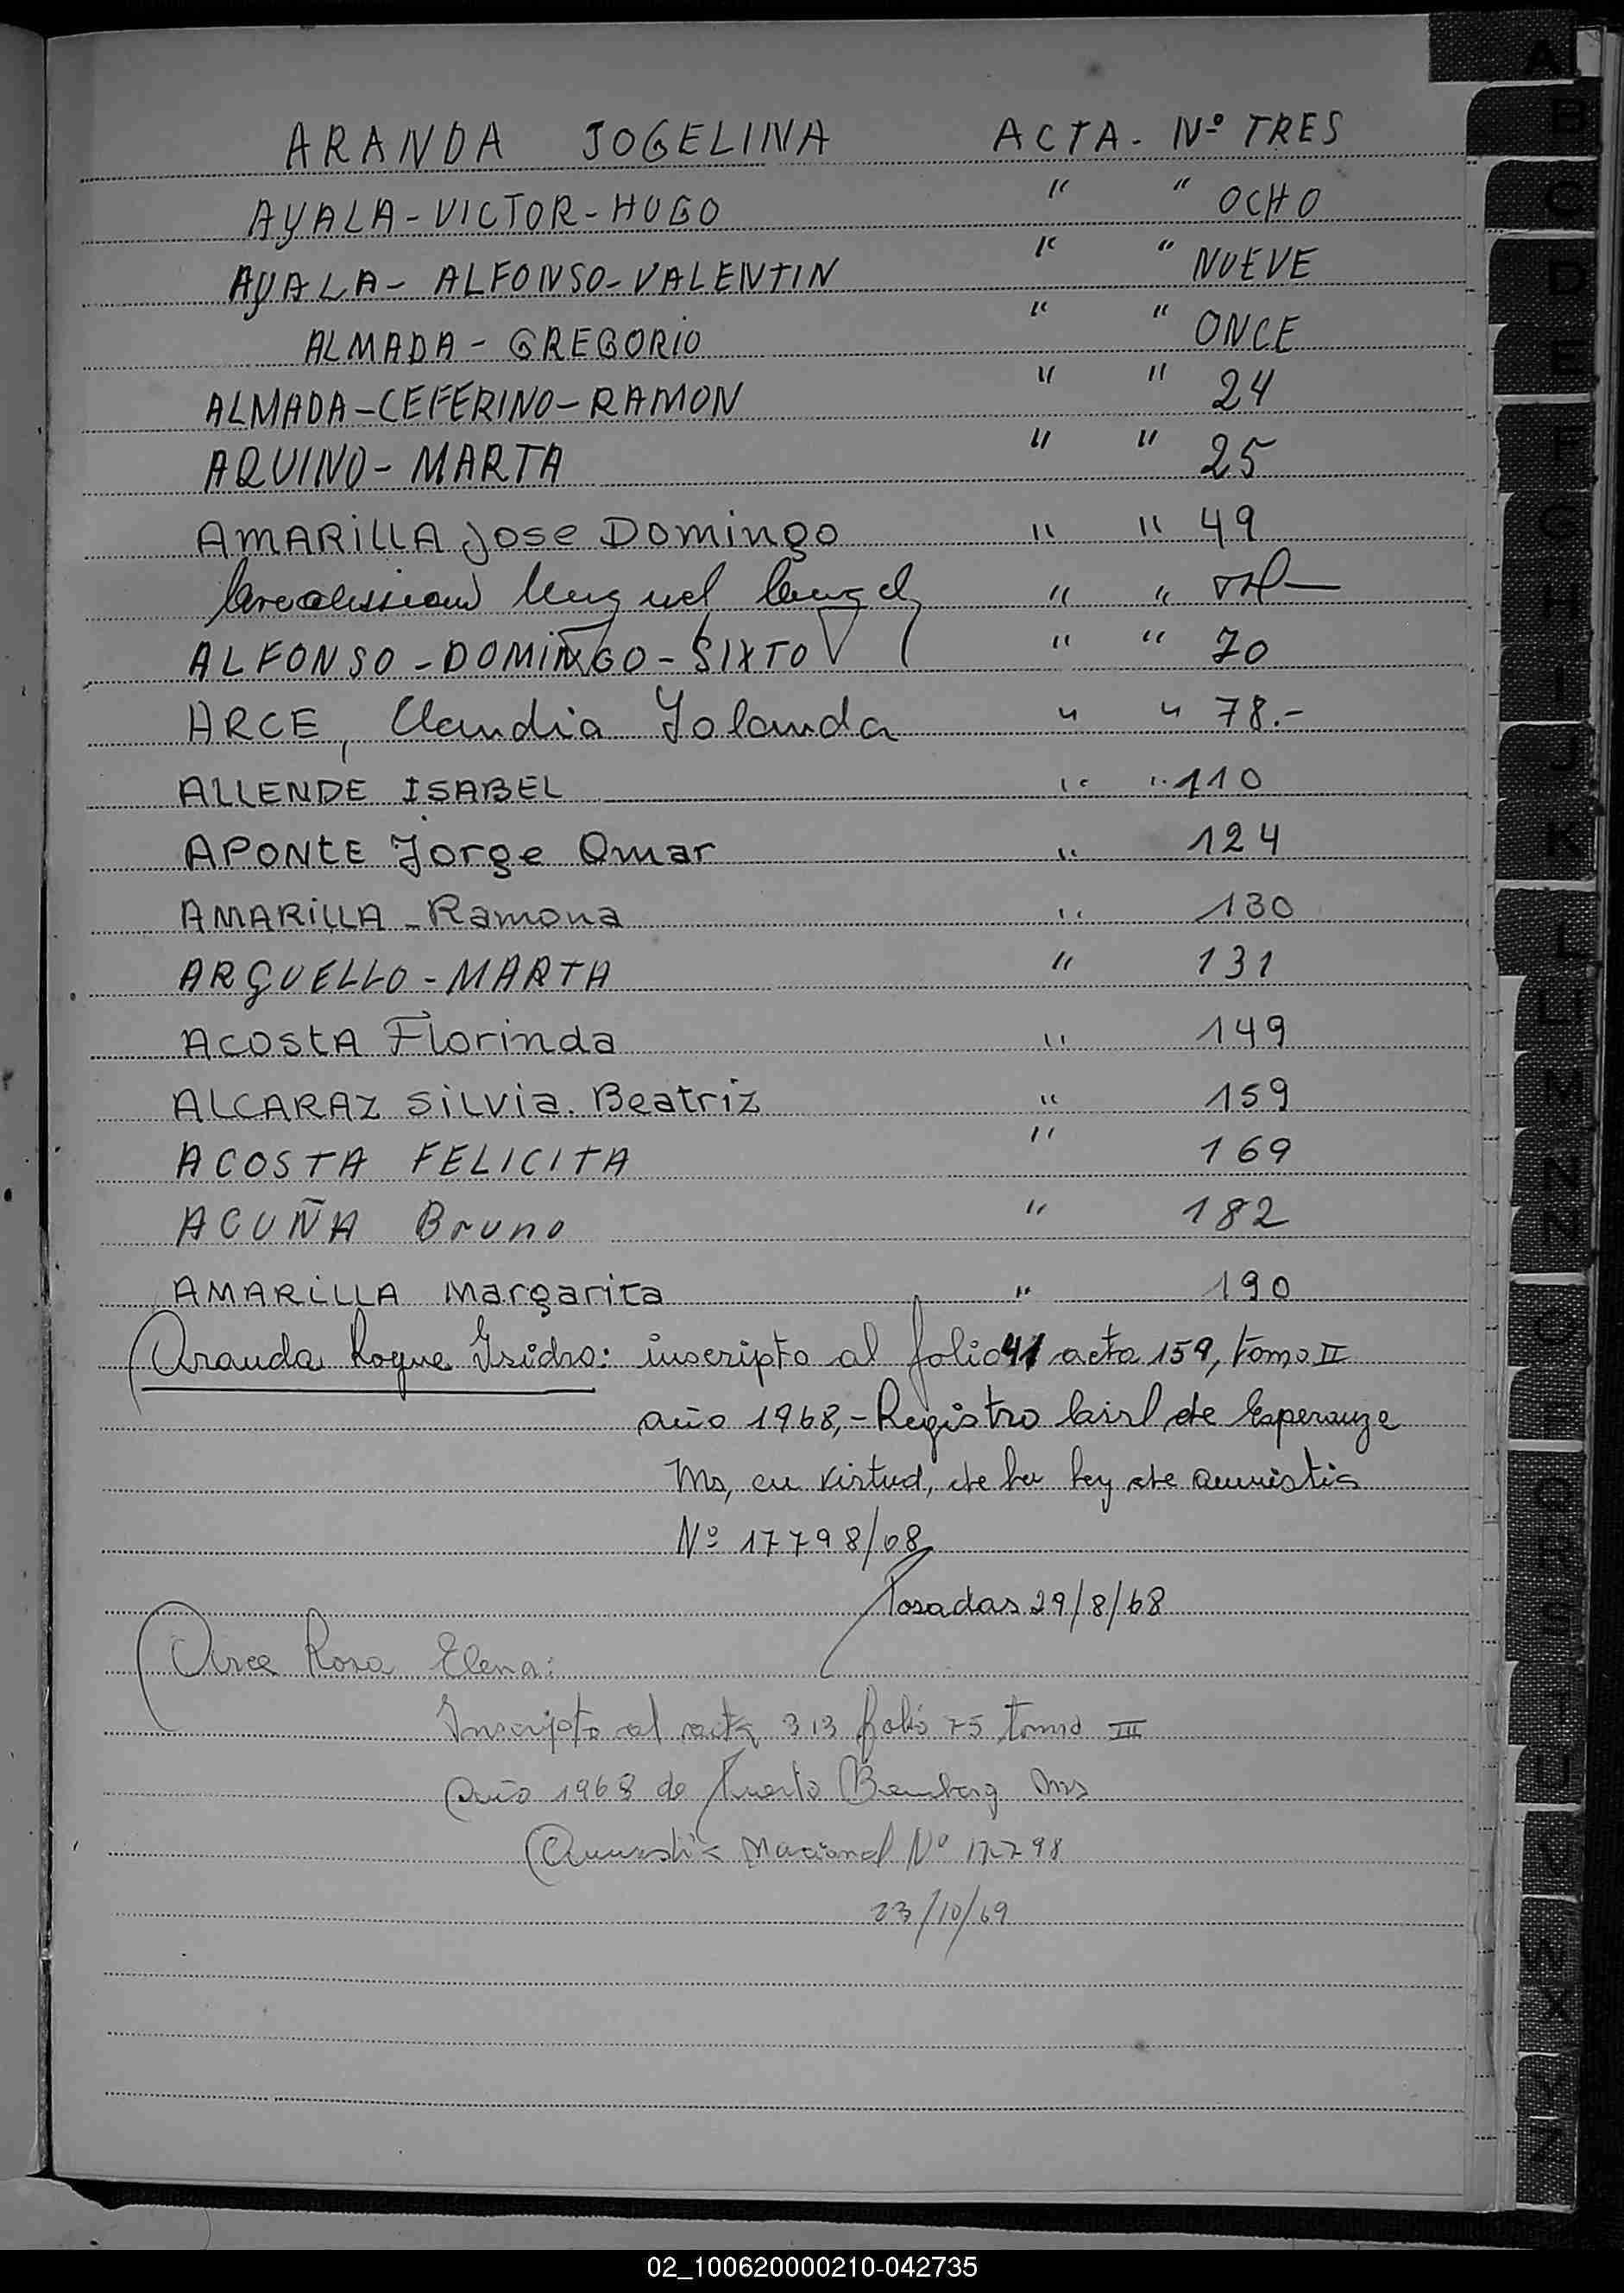 ARANDA JOGELINA ACTA. Nº TRES
AYALA-VICTOR-HUGO " " OCHO
AYALA- ALFONSO-VALENTIN " " NUEVE
ALMADA - GREGORIO " " ONCE
ALMADA-CEFERINO-RAMON " " 24
AQUINO-MARTA " " 25
AMARILLA Jose Domingo " " 49
" "
ALFONSO-DOMINGO-SIXTO " " 70
ARCE, Claudia Yolanda " " 78.-
ALLENDE ISABEL " " 110
APONTE Jorge Omar " 124
AMARILLA-Ramona " 130
ARGUELLO-MARTA " 131
ACOSTA Florinda " 149
ALCARAZ SILVIA. Beatriz " 159
ACOSTA FELICITA " 169
ACUÑA Bruno " 182
AMARILLA Margarita " 190
Aranda Roque Isidro: inscripto al folio 41 acta 159, tomo II
año 1968,- Registro Civil de Esperanza
Ms, en virtud, de la ley de amnistia
Nº 17798/68
Posadas 29/8/68
Arce Rosa Elena:
Inscripto al acta 313 folio 75 tomo III
Año 1968 de Puerto Bemberg Ms
Amnistia Nacional Nº 17798
23/10/69
A
B
C
D
E
F
G
H
I
J
K
L
LL
M
N
Ñ
O
P
Q
R
S
T
U
V
W
X
Y
Z
02_100620000210-042735